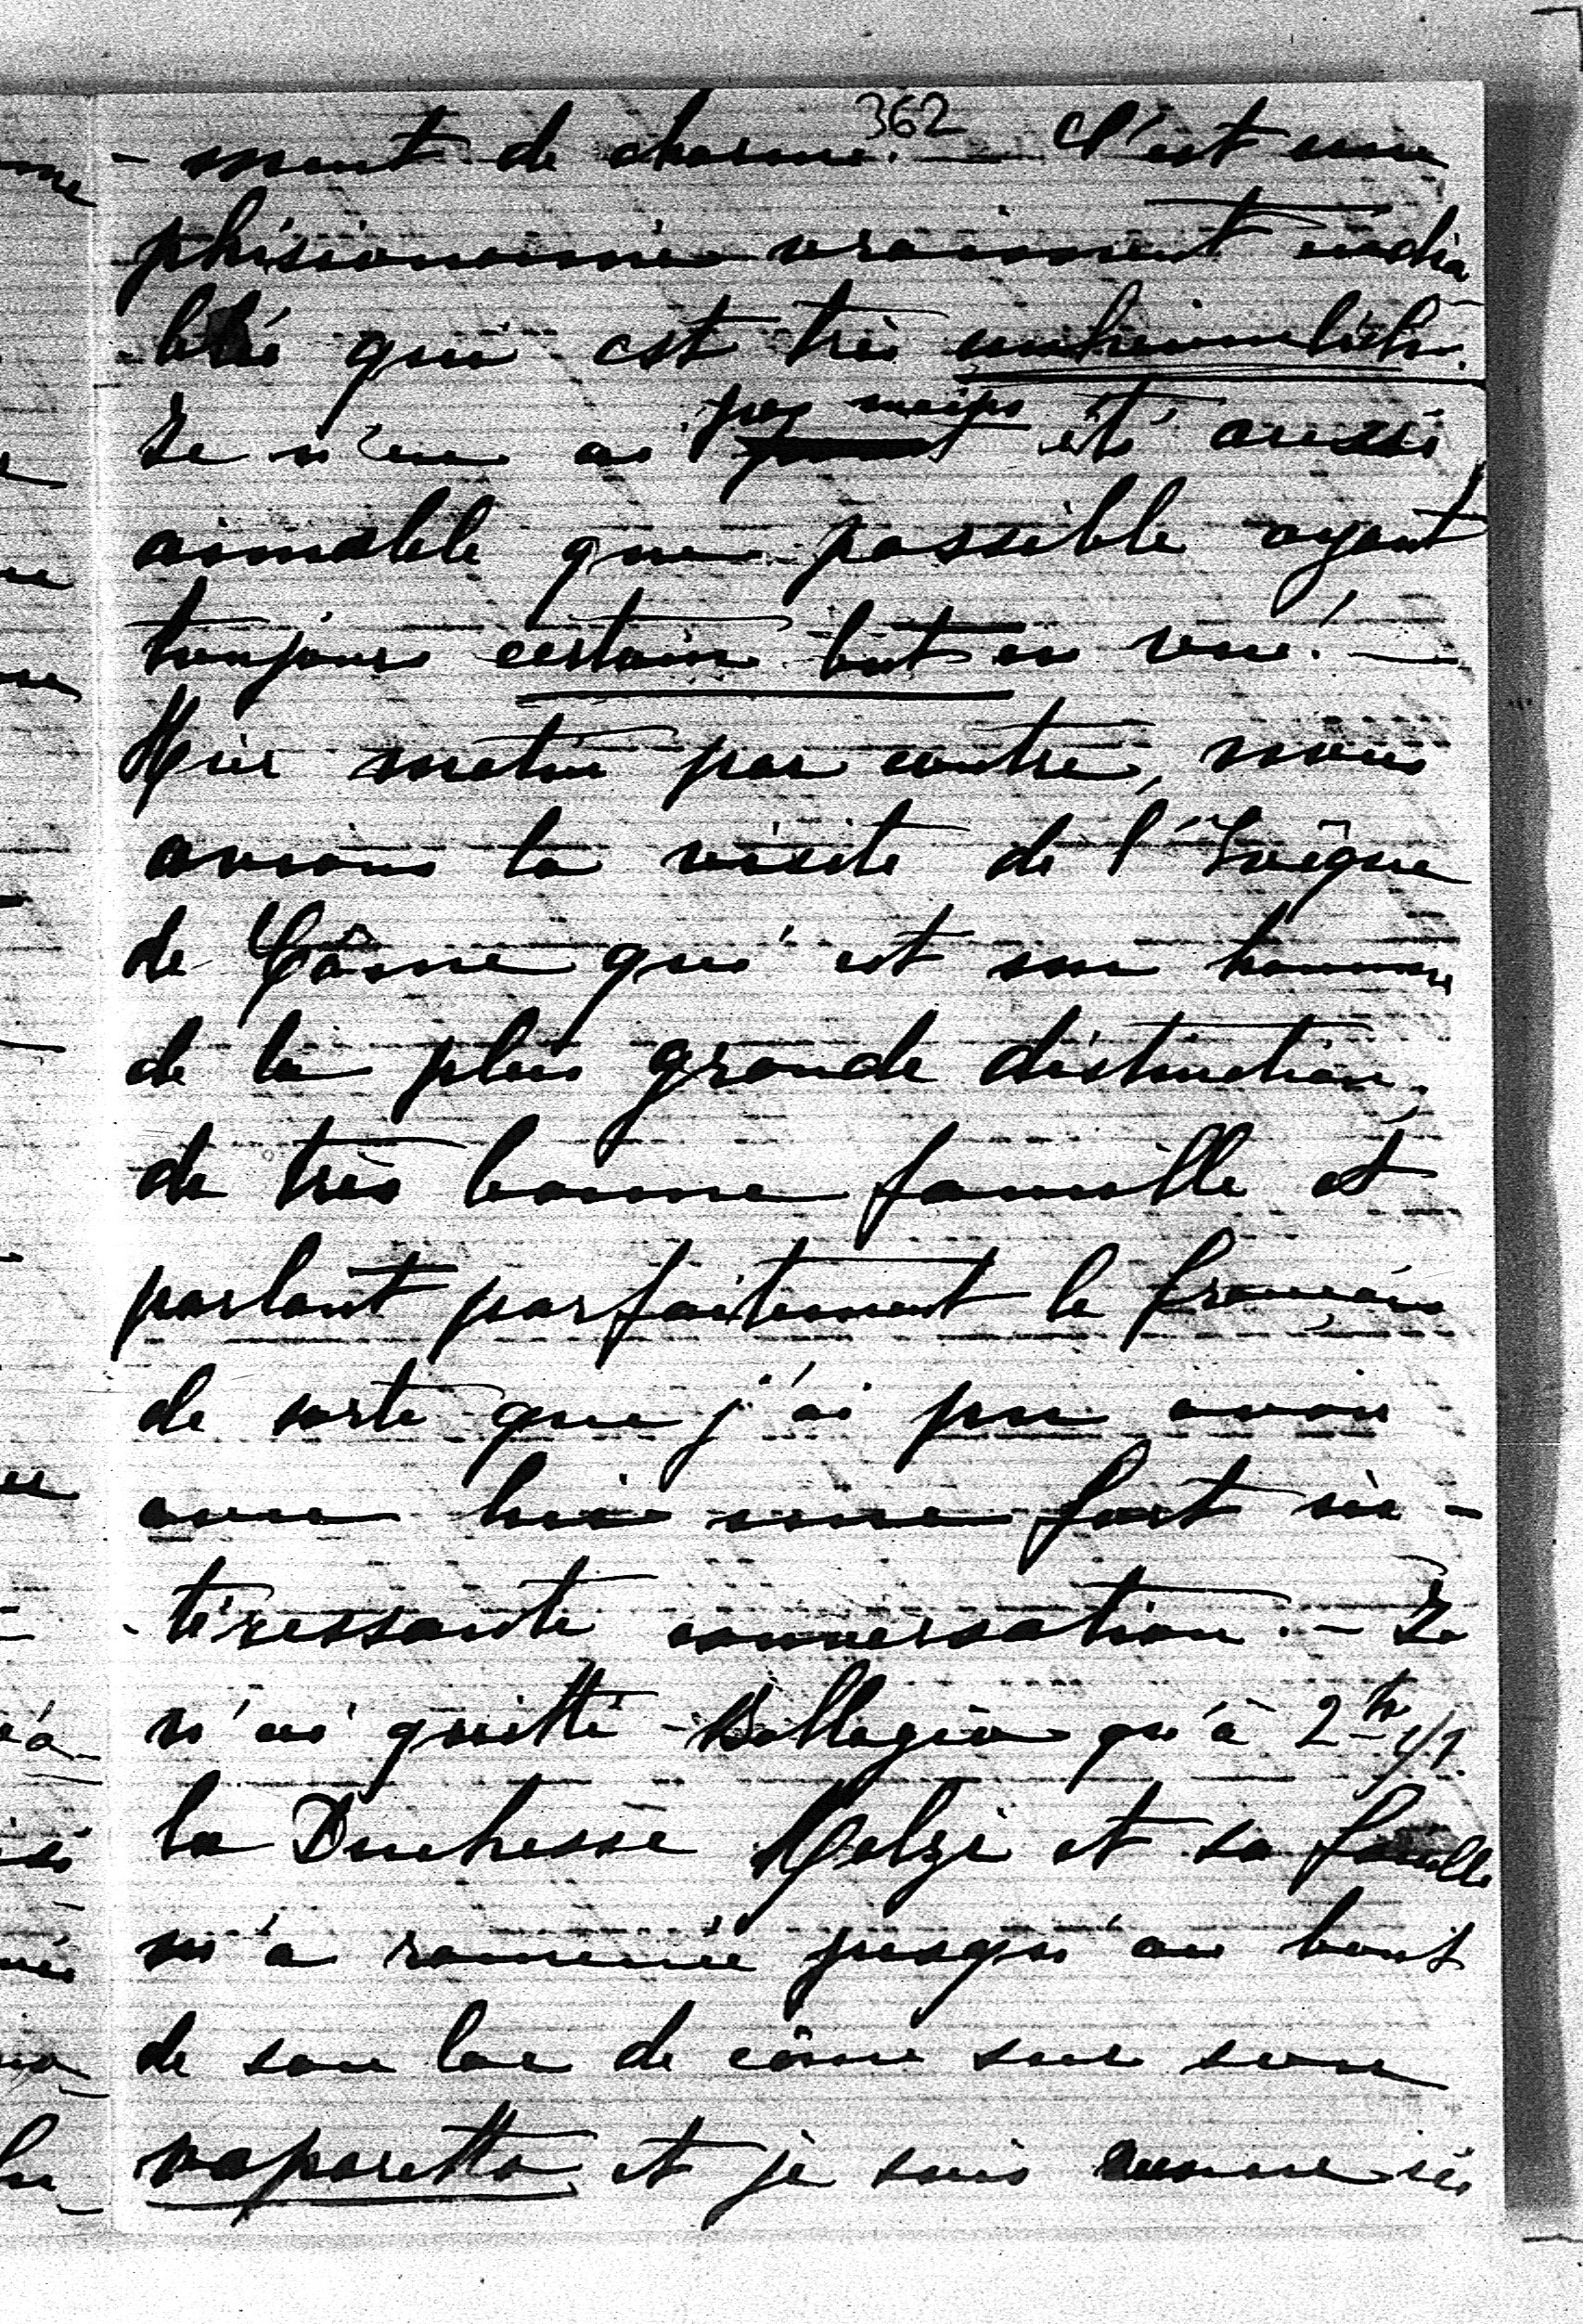 362
- ment de charme. — C'est une
phisionomie vraiment endia-
-blée qui est très unheimlich.
Je n'en ai pas moins été aussi
aimable que possible ayant
toujours certain but en vue! —
Hier matin par contre, nous
avions la visite de l'Evêque
de Côme qui est un homme
de la plus grande distinction,
de très bonne famille et
parlant parfaitement le français
de sorte que j'ai pu avoir
avec lui une fort in-
-téressante conversation. - Je
n'ai quitté Bellagio qu'à 2 h 1/2.
la Duchesse Melzi et sa famille
m'a ramenée jusqu'au bout
de son lac de côme sur son
vaporetto et je suis ici